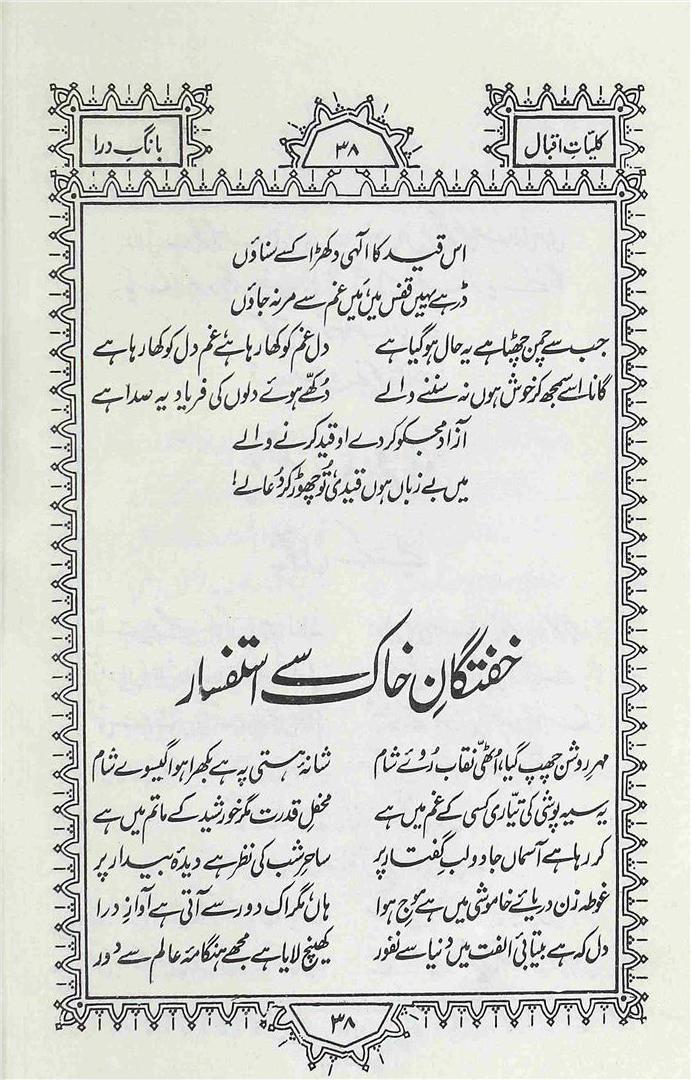 کلیاتِ اقبال
۳۸
بانگِ درا
اس قید کا الٰہی دکھڑا کسے سناؤں
ڈر ہے یہیں قفس میں مَیں غم سے مر نہ جاؤں
جب سے چمن چھٹا ہے یہ حال ہو گیا ہے دل غم کو کھا رہا ہے، غم دل کو کھا رہا ہے
گانا اسے سمجھ کر خوش ہوں نہ سننے والے دُکھّے ہوئے دلوں کی فریاد یہ صدا ہے
آزاد مجکو کر دے او قید کرنے والے
میں بے زباں ہوں قیدی، تُو چھوڑ کر دُعا لے!
خفتگانِ خاک سے استفسار
مہرِ روشن چھپ گیا، اُٹھّی نقاب رُوئے شام شانۂ ہستی پہ ہے بکھرا ہوا گیسوئے شام
یہ سیہ پوشی کی تیّاری کسی کے غم میں ہے محفلِ قدرت مگر خورشید کے ماتم میں ہے
کر رہا ہے آسماں جادو لبِ گفتار پر ساحرِ شب کی نظر ہے دیدۂ بیدار پر
غوطہ زن دریائے خاموشی میں ہے موجِ ہوا ہاں، مگر اک دور سے آتی ہے آوازِ درا
دل کہ ہے بیتابیٔ الفت میں دنیا سے نفور کھینچ لایا ہے مجھے ہنگامۂ عالم سے دور
۳۸